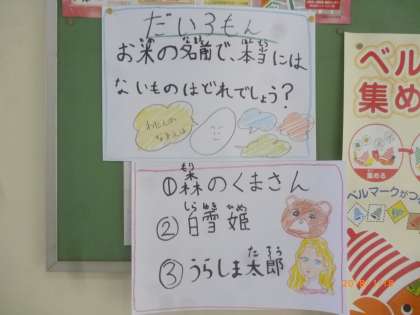 だい3もん
お米の名前で、本当には
ないものはどれでしょう?
わたしの
なまえは
①森のくまさん
②白雪姫
③うらしま太郎
ベル
集め
集める
ベルマークがつ